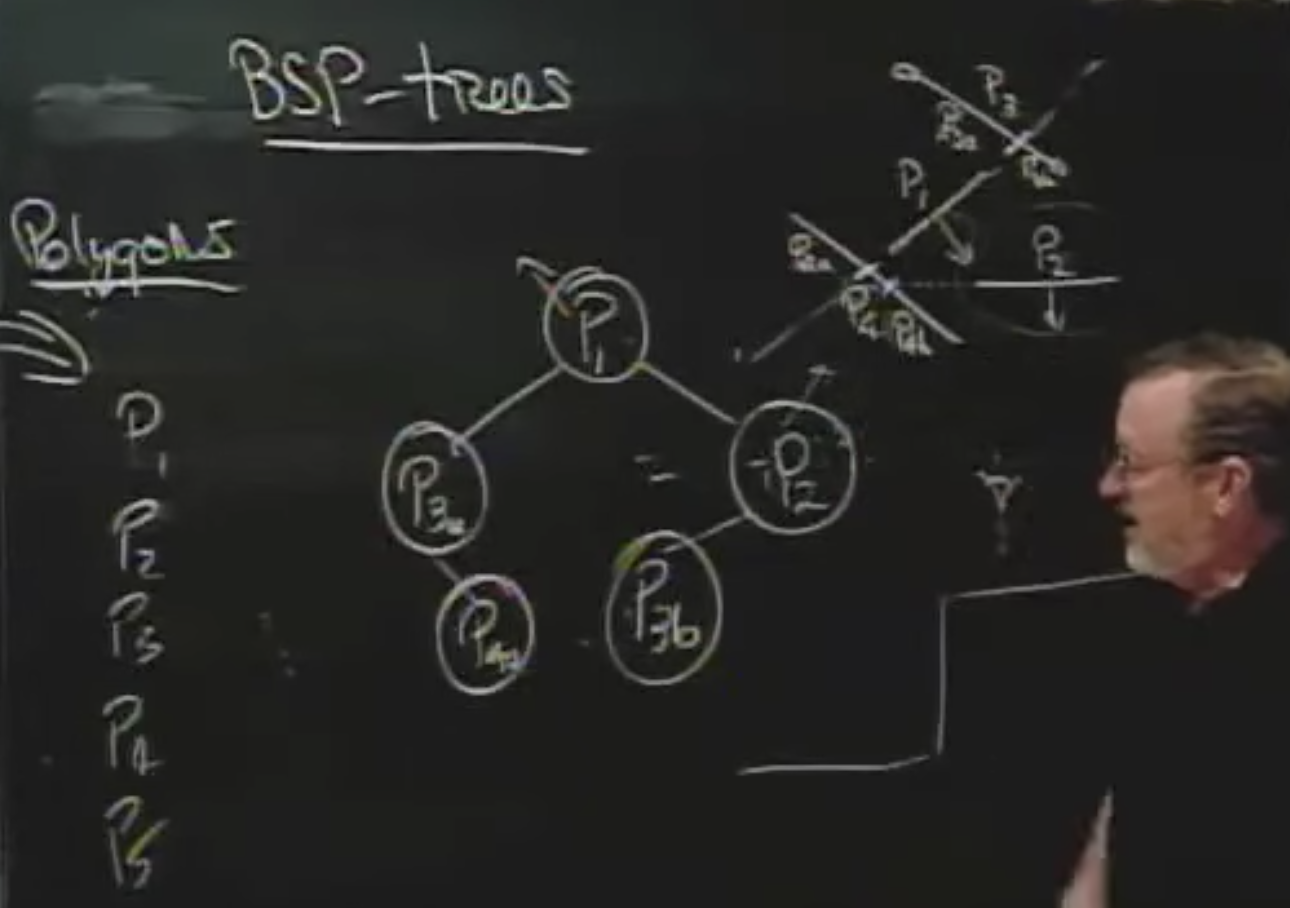 BSP-trees
Polygons
P1
P2
P3
P4
P5
P1
P3a
P2
P4a
P3b
P3
P3a
P1
P2
P4
P4b